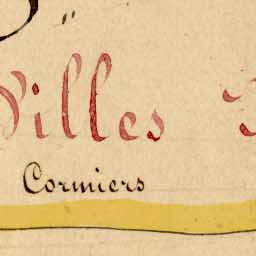 Villes
Cormiers